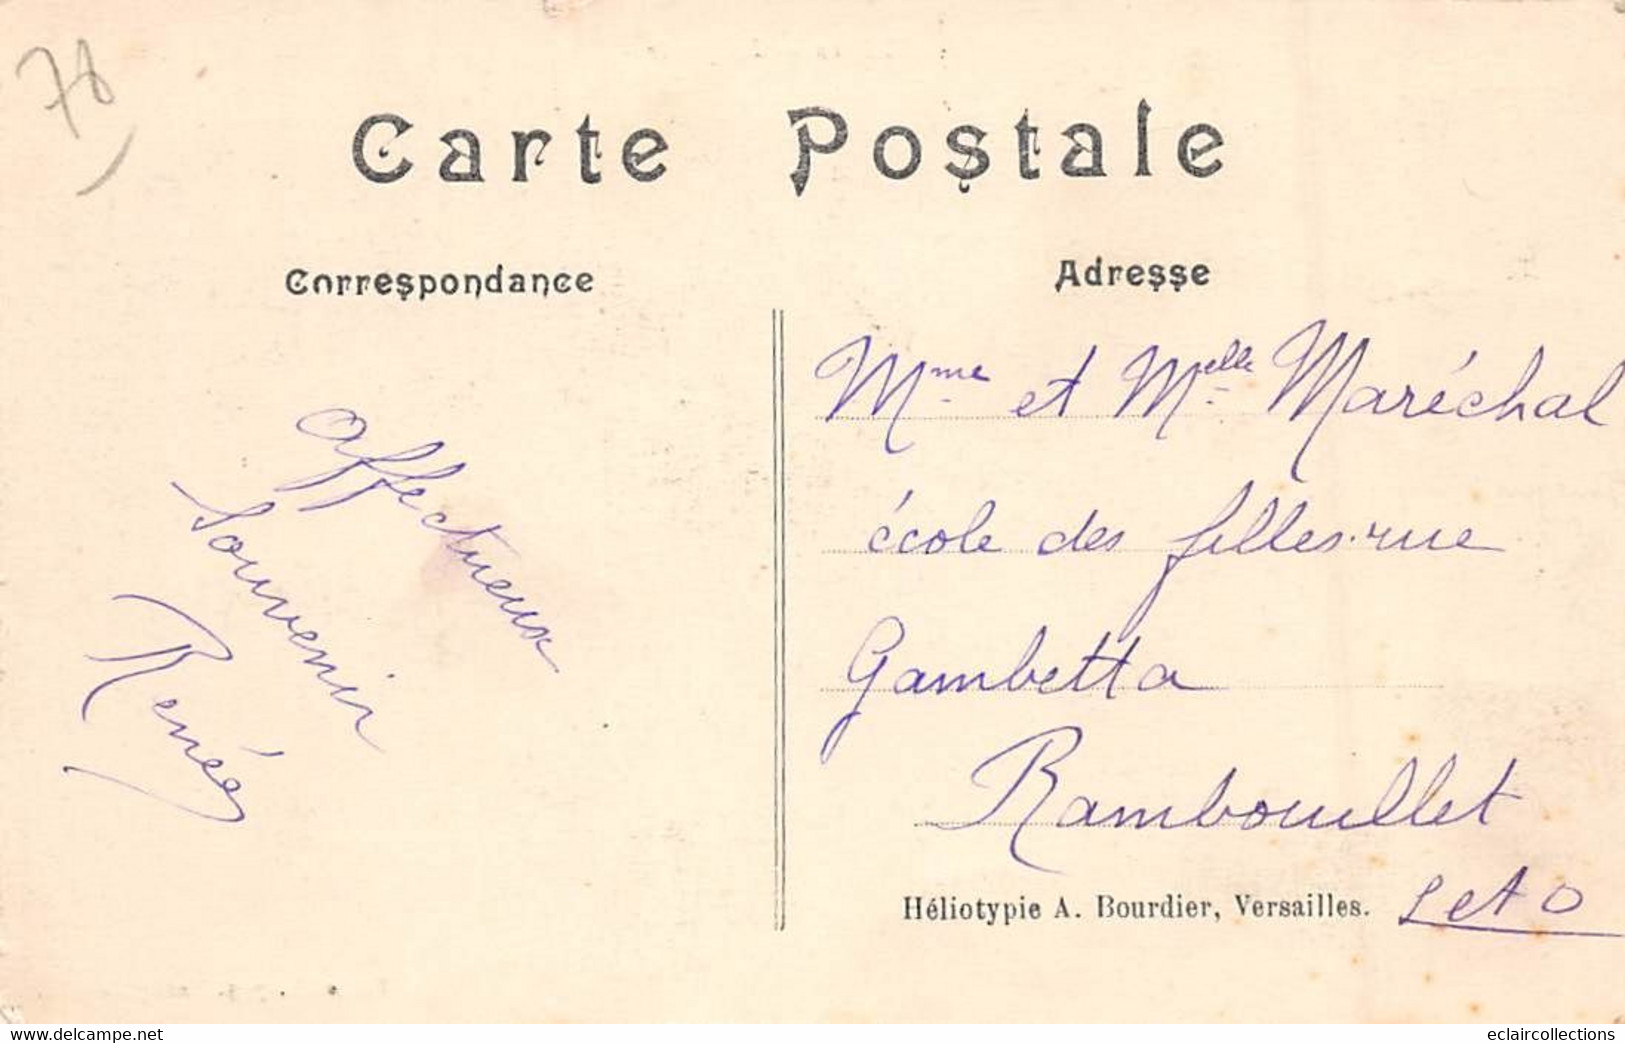 78
Carte Postale
Correspondance
Adresse
affectueux
Souvenir
Renée
Mme et Melle Maréchal
école des filles. rue
Gambetta
Rambouillet
S et O
Héliotypie A. Bourdier, Versailles.
www.delcampe.net
eclaircollections